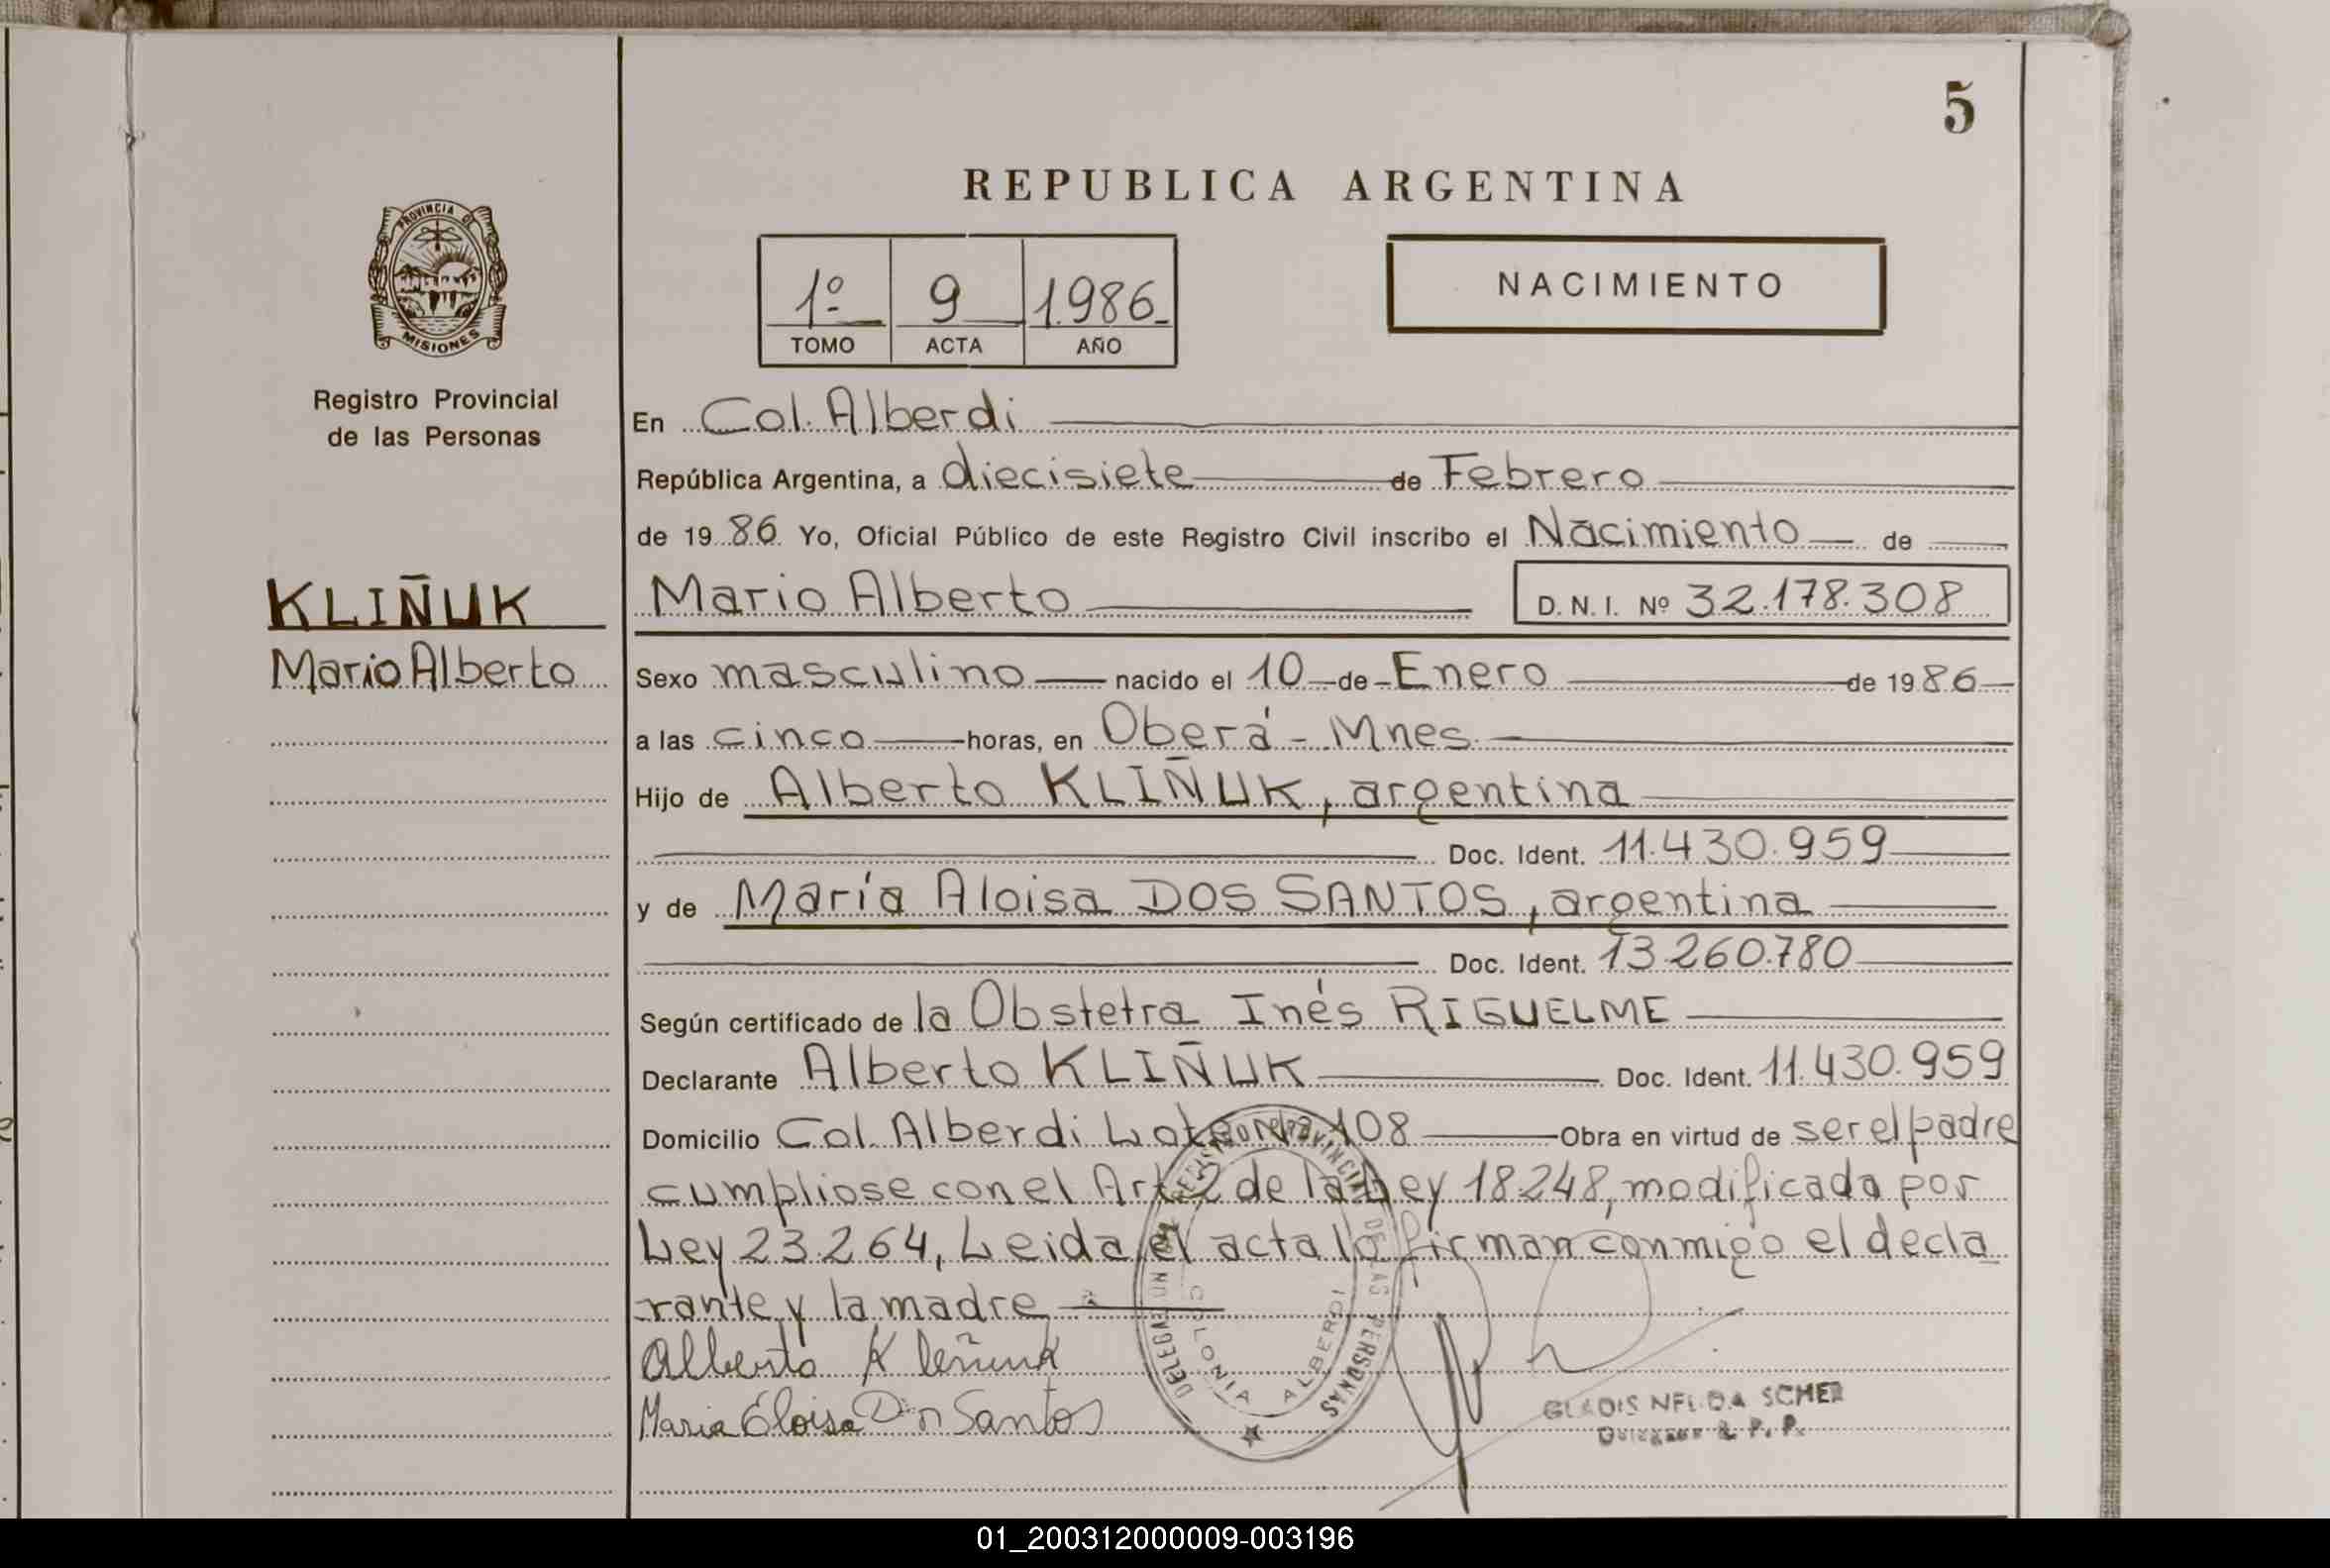 5
REPUBLICA ARGENTINA
PROVINCIA DE
MISIONES
1º 9 1.986
TOMO ACTA AÑO
NACIMIENTO
Registro Provincial
de las Personas
KLIÑUK
Mario Alberto
En Col. Alberdi
República Argentina, a diecisiete de Febrero
de 19 86 Yo, Oficial Público de este Registro Civil inscribo el Nacimiento de
Mario Alberto D.N.I. Nº 32.178.308
Sexo masculino nacido el 10 de Enero de 19 86
a las cinco horas, en Oberá - Mnes.
Hijo de Alberto KLIÑUK, argentina
Doc. Ident. 11.430.959
y de María Aloisa DOS SANTOS, argentina
Doc. Ident. 13.260.780
Según certificado de la Obstetra Inés RIGUELME
Declarante Alberto KLIÑUK Doc. Ident. 11.430.959
Domicilio Col. Alberdi Lote Nº 108 Obra en virtud de ser el padre
cumpliose con el Art 2 de la Ley 18.248, modificada por
Ley 23.264, Leida el acta lo firman conmigo el decla
rante y la madre
Alberto Kleñuk
Maria Eloisa Dos Santos
DELEGACION REGISTRO PROVINCIAL DE LAS PERSONAS
COLONIA ALBERDI
GLADIS NELIDA SCHER
R. P. P.
01_200312000009-003196